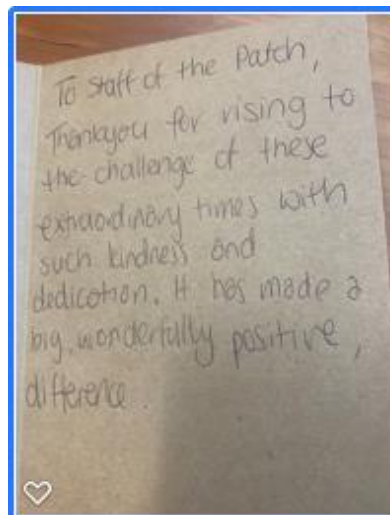 To Staff of the Patch,
Thankyou for rising to
the challenge of these
extraordinary times with
such kindness and
dedication. It has made a
big, wonderfully positive,
difference.